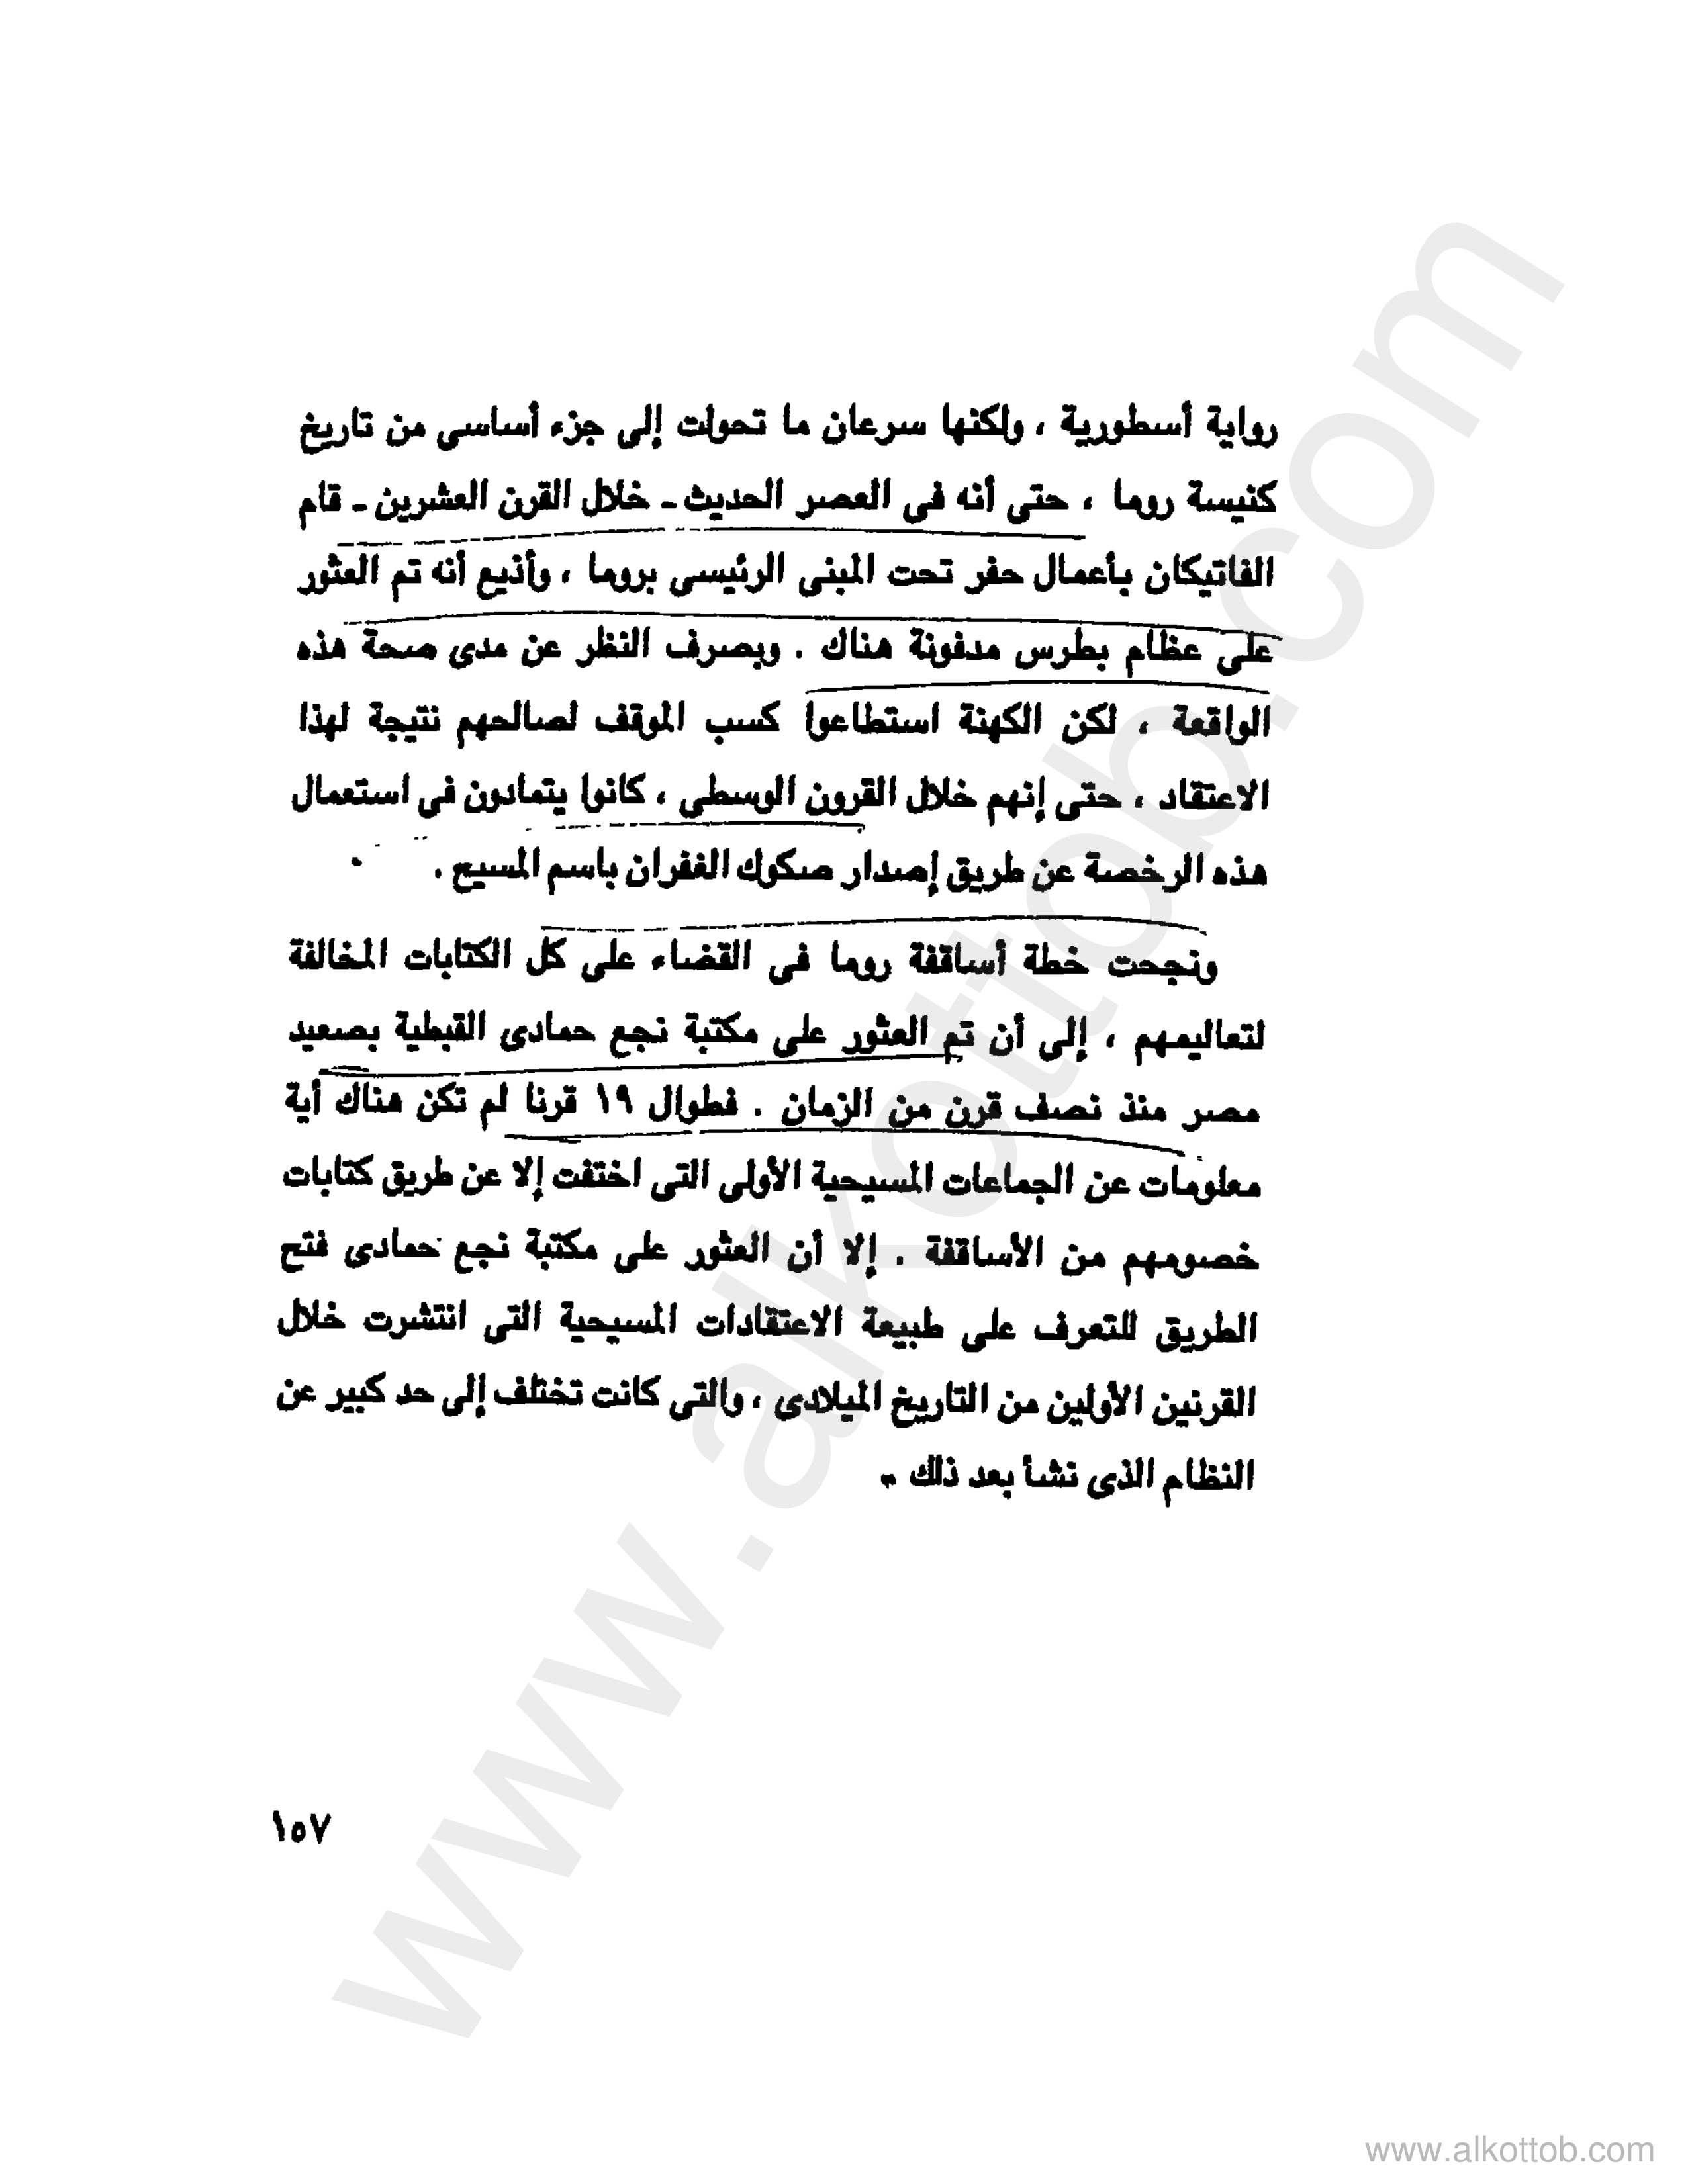 رواية أسطورية ، ولكنها سرعان ما تحولت إلى جزء أساسى من تاريخ
كنيسة روما ، حتى أنه فى العصر الحديث ـ خلال القرن العشرين ـ قام
الفاتيكان بأعمال حفر تحت المبنى الرئيسى بروما ، وأذيع أنه تم العثور
على عظام بطرس مدفونة هناك . وبصرف النظر عن مدى صحة هذه
الواقعة ، لكن الكهنة استطاعوا كسب الموقف لصالحهم نتيجة لهذا
الاعتقاد ، حتى إنهم خلال القرون الوسطى ، كانوا يتمادون فى استعمال
هذه الرخصة عن طريق إصدار صكوك الغفران باسم المسيح .
ونجحت خطة أساقفة روما فى القضاء على كل الكتابات المخالفة
لتعاليمهم ، إلى أن تم العثور على مكتبة نجع حمادى القبطية بصعيد
مصر منذ نصف قرن من الزمان . فطوال ١٩ قرنا لم تكن هناك أية
معلومات عن الجماعات المسيحية الأولى التى اختفت إلا عن طريق كتابات
خصومهم من الأساقفة . إلا أن العثور على مكتبة نجع حمادى فتح
الطريق للتعرف على طبيعة الاعتقادات المسيحية التى انتشرت خلال
القرنين الأولين من التاريخ الميلادى ، والتى كانت تختلف إلى حد كبير عن
النظام الذى نشأ بعد ذلك .
١٥٧
www.alkottob.com
www.alkottob.com